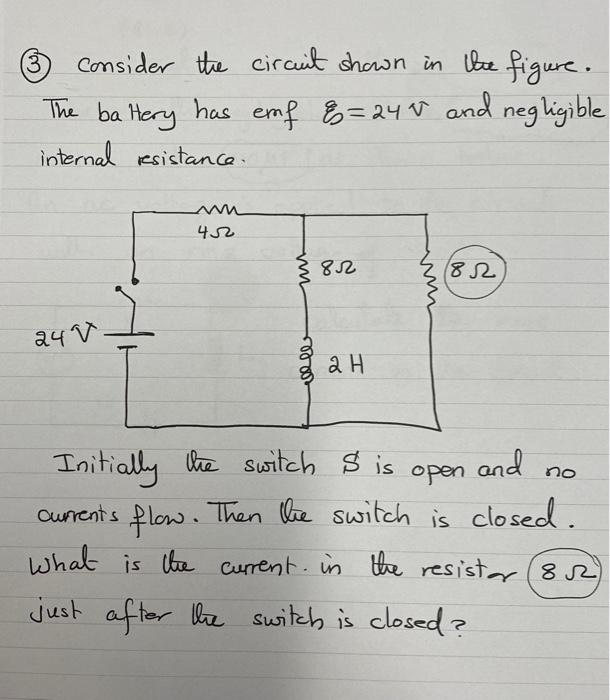 ③ Consider the circuit shown in the figure.
The battery has emf ℰ = 24 V and negligible
internal resistance.
4Ω
8Ω
8Ω
24 V
2 H
Initially the switch S is open and no
currents flow. Then the switch is closed.
What is the current. in the resistor 8 Ω
just after the switch is closed?